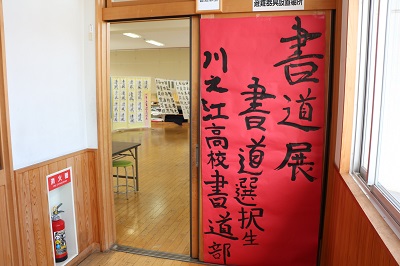 避難器具設置場所
書道展
書道選択生
川之江高校書道部
消火器